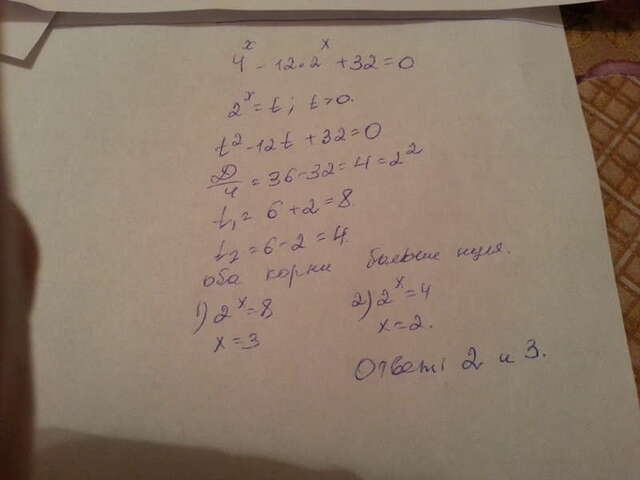 4ˣ - 12·2ˣ + 32 = 0
2ˣ = t; t > 0.
t² - 12t + 32 = 0
D/4 = 36 - 32 = 4 = 2²
t₁ = 6 + 2 = 8.
t₂ = 6 - 2 = 4.
оба корни больше нуля.
1) 2ˣ = 8
x = 3
2) 2ˣ = 4
x = 2.
Ответ: 2 и 3.